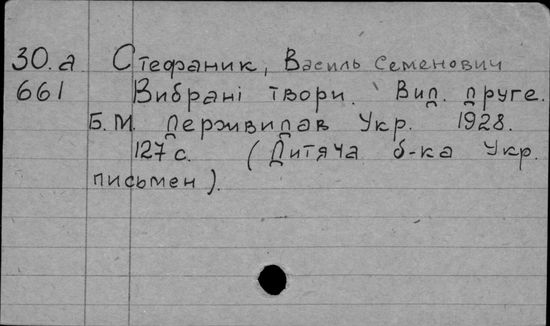 30.а Стефаник, Василь Семенович
661 Вибрані твори. Вид. друге.
Б.М. Держвидав Укр. 1928.
127 с. (Дитяча б-ка Укр.
письмен).